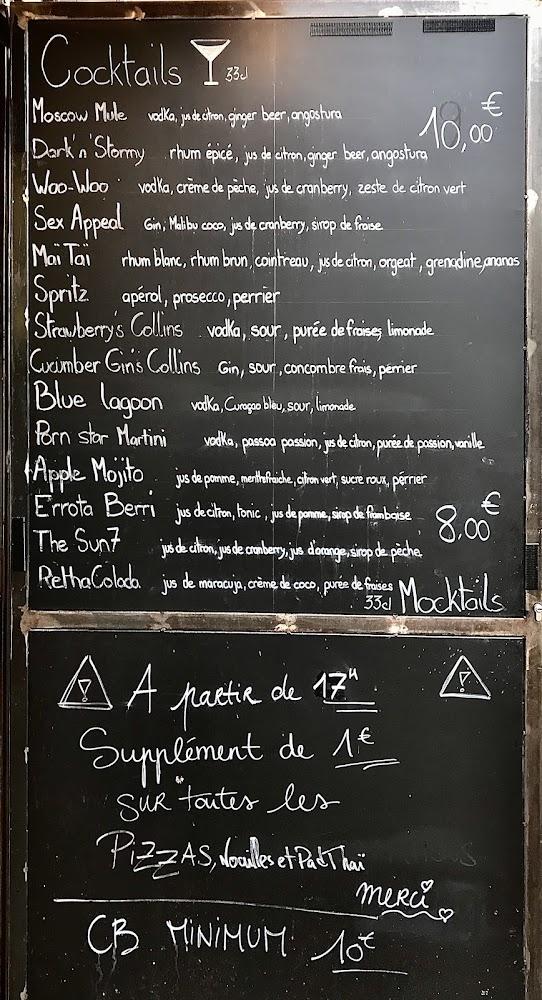 Cocktails 33cl
10,00€
Moscow Mule vodka, jus de citron, ginger beer, angostura
Dark'n'Stormy rhum épicé, jus de citron, ginger beer, angostura
Woo-Woo vodka, crème de pêche, jus de cranberry, zeste de citron vert
Sex Appeal Gin, Malibu coco, jus de cranberry, sirop de fraise
Maï Taï rhum blanc, rhum brun, cointreau, jus de citron, orgeat, grenadine, ananas
Spritz apérol, prosecco, perrier
Strawberry's Collins vodka, sour, purée de fraises, limonade
Cucumber Gin's Collins Gin, sour, concombre frais, perrier
Blue lagoon vodka, Curaçao bleu, sour, limonade
Porn star Martini vodka, passoa passion, jus de citron, purée de passion, vanille
Apple Mojito jus de pomme, menthe fraiche, citron vert, sucre roux, pérrier
Errota Berri jus de citron, tonic, jus de pomme, sirop de framboise
8.00€
The Sun7 jus de citron, jus de cranberry, jus d'orange, sirop de pêche
RethaColada jus de maracuja, crème de coco, purée de fraises
33cl Mocktails
A partir de 17H
Supplément de 1€
SUR toutes les
PIZZAS, Nouilles et Pad Thaï
merci
CB MINIMUM 10€